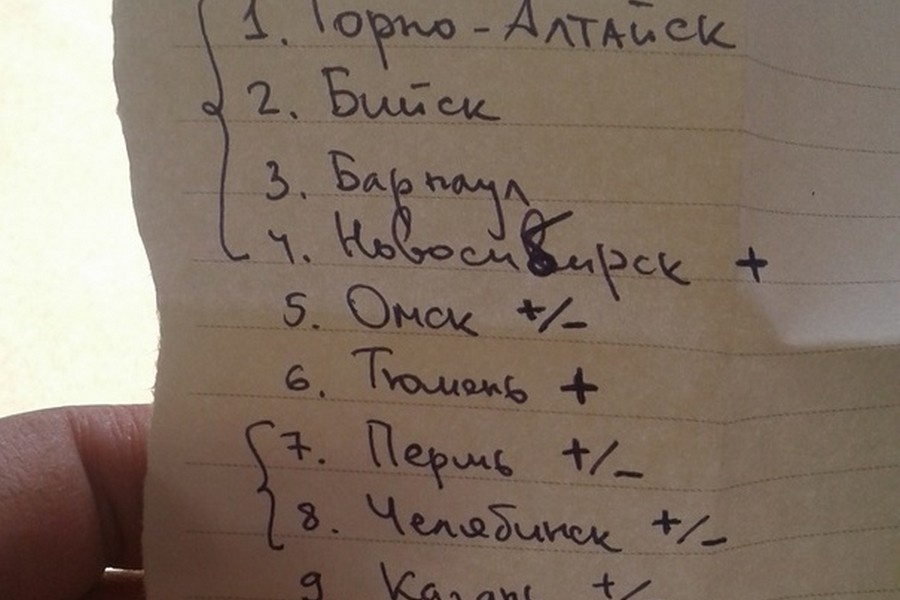 1. Горно-Алтайск
2. Бийск
3. Барнаул
4. Новосибирск +
5. Омск +/-
6. Тюмень +
7. Пермь +/-
8. Челябинск +/-
9 Казань +/